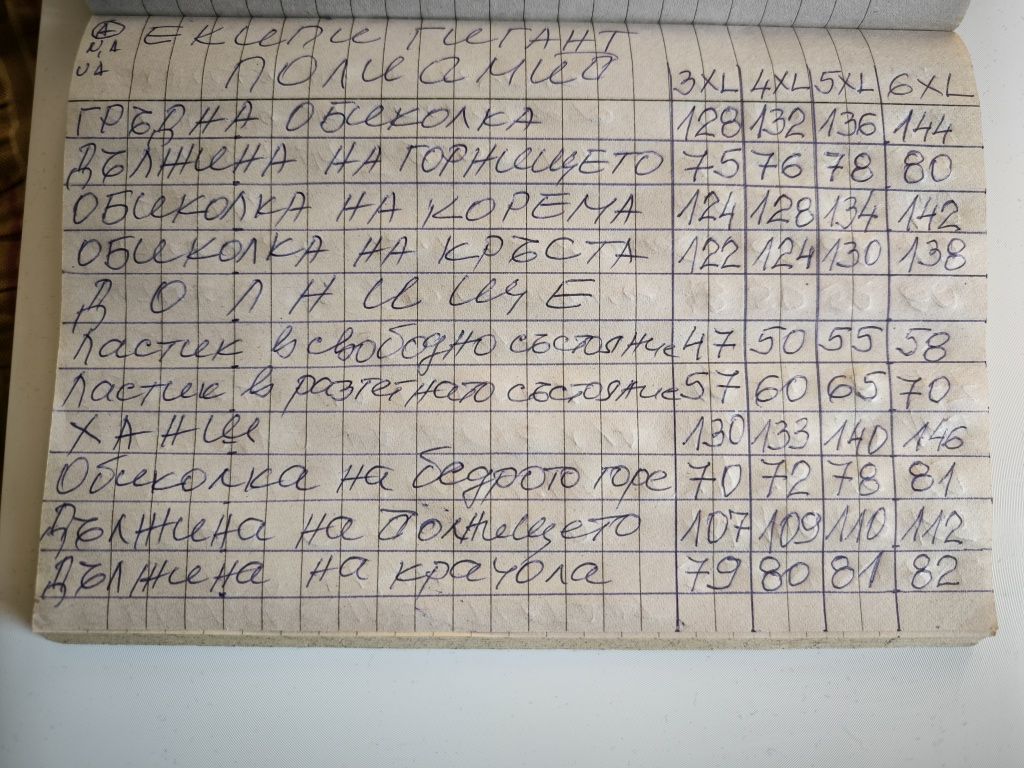 ЕКИПИ ГИГАНТ
ПОЛИАМИД 3XL 4XL 5XL 6XL
ГРЪДНА ОБИКОЛКА 128 132 136 144
ДЪЛЖИНА НА ГОРНИЩЕТО 75 76 78 80
ОБИКОЛКА НА КОРЕМА 124 128 134 142
ОБИКОЛКА НА КРЪСТА 122 124 130 138
ДОЛНИЩЕ
Ластик в свободно състояние 47 50 55 58
Ластик в разтегнато състояние 57 60 65 70
ХАНШ 130 133 140 146
Обиколка на бедрото горе 70 72 78 81
Дължина на Долнището 107 109 110 112
Дължина на крачола 79 80 81 82